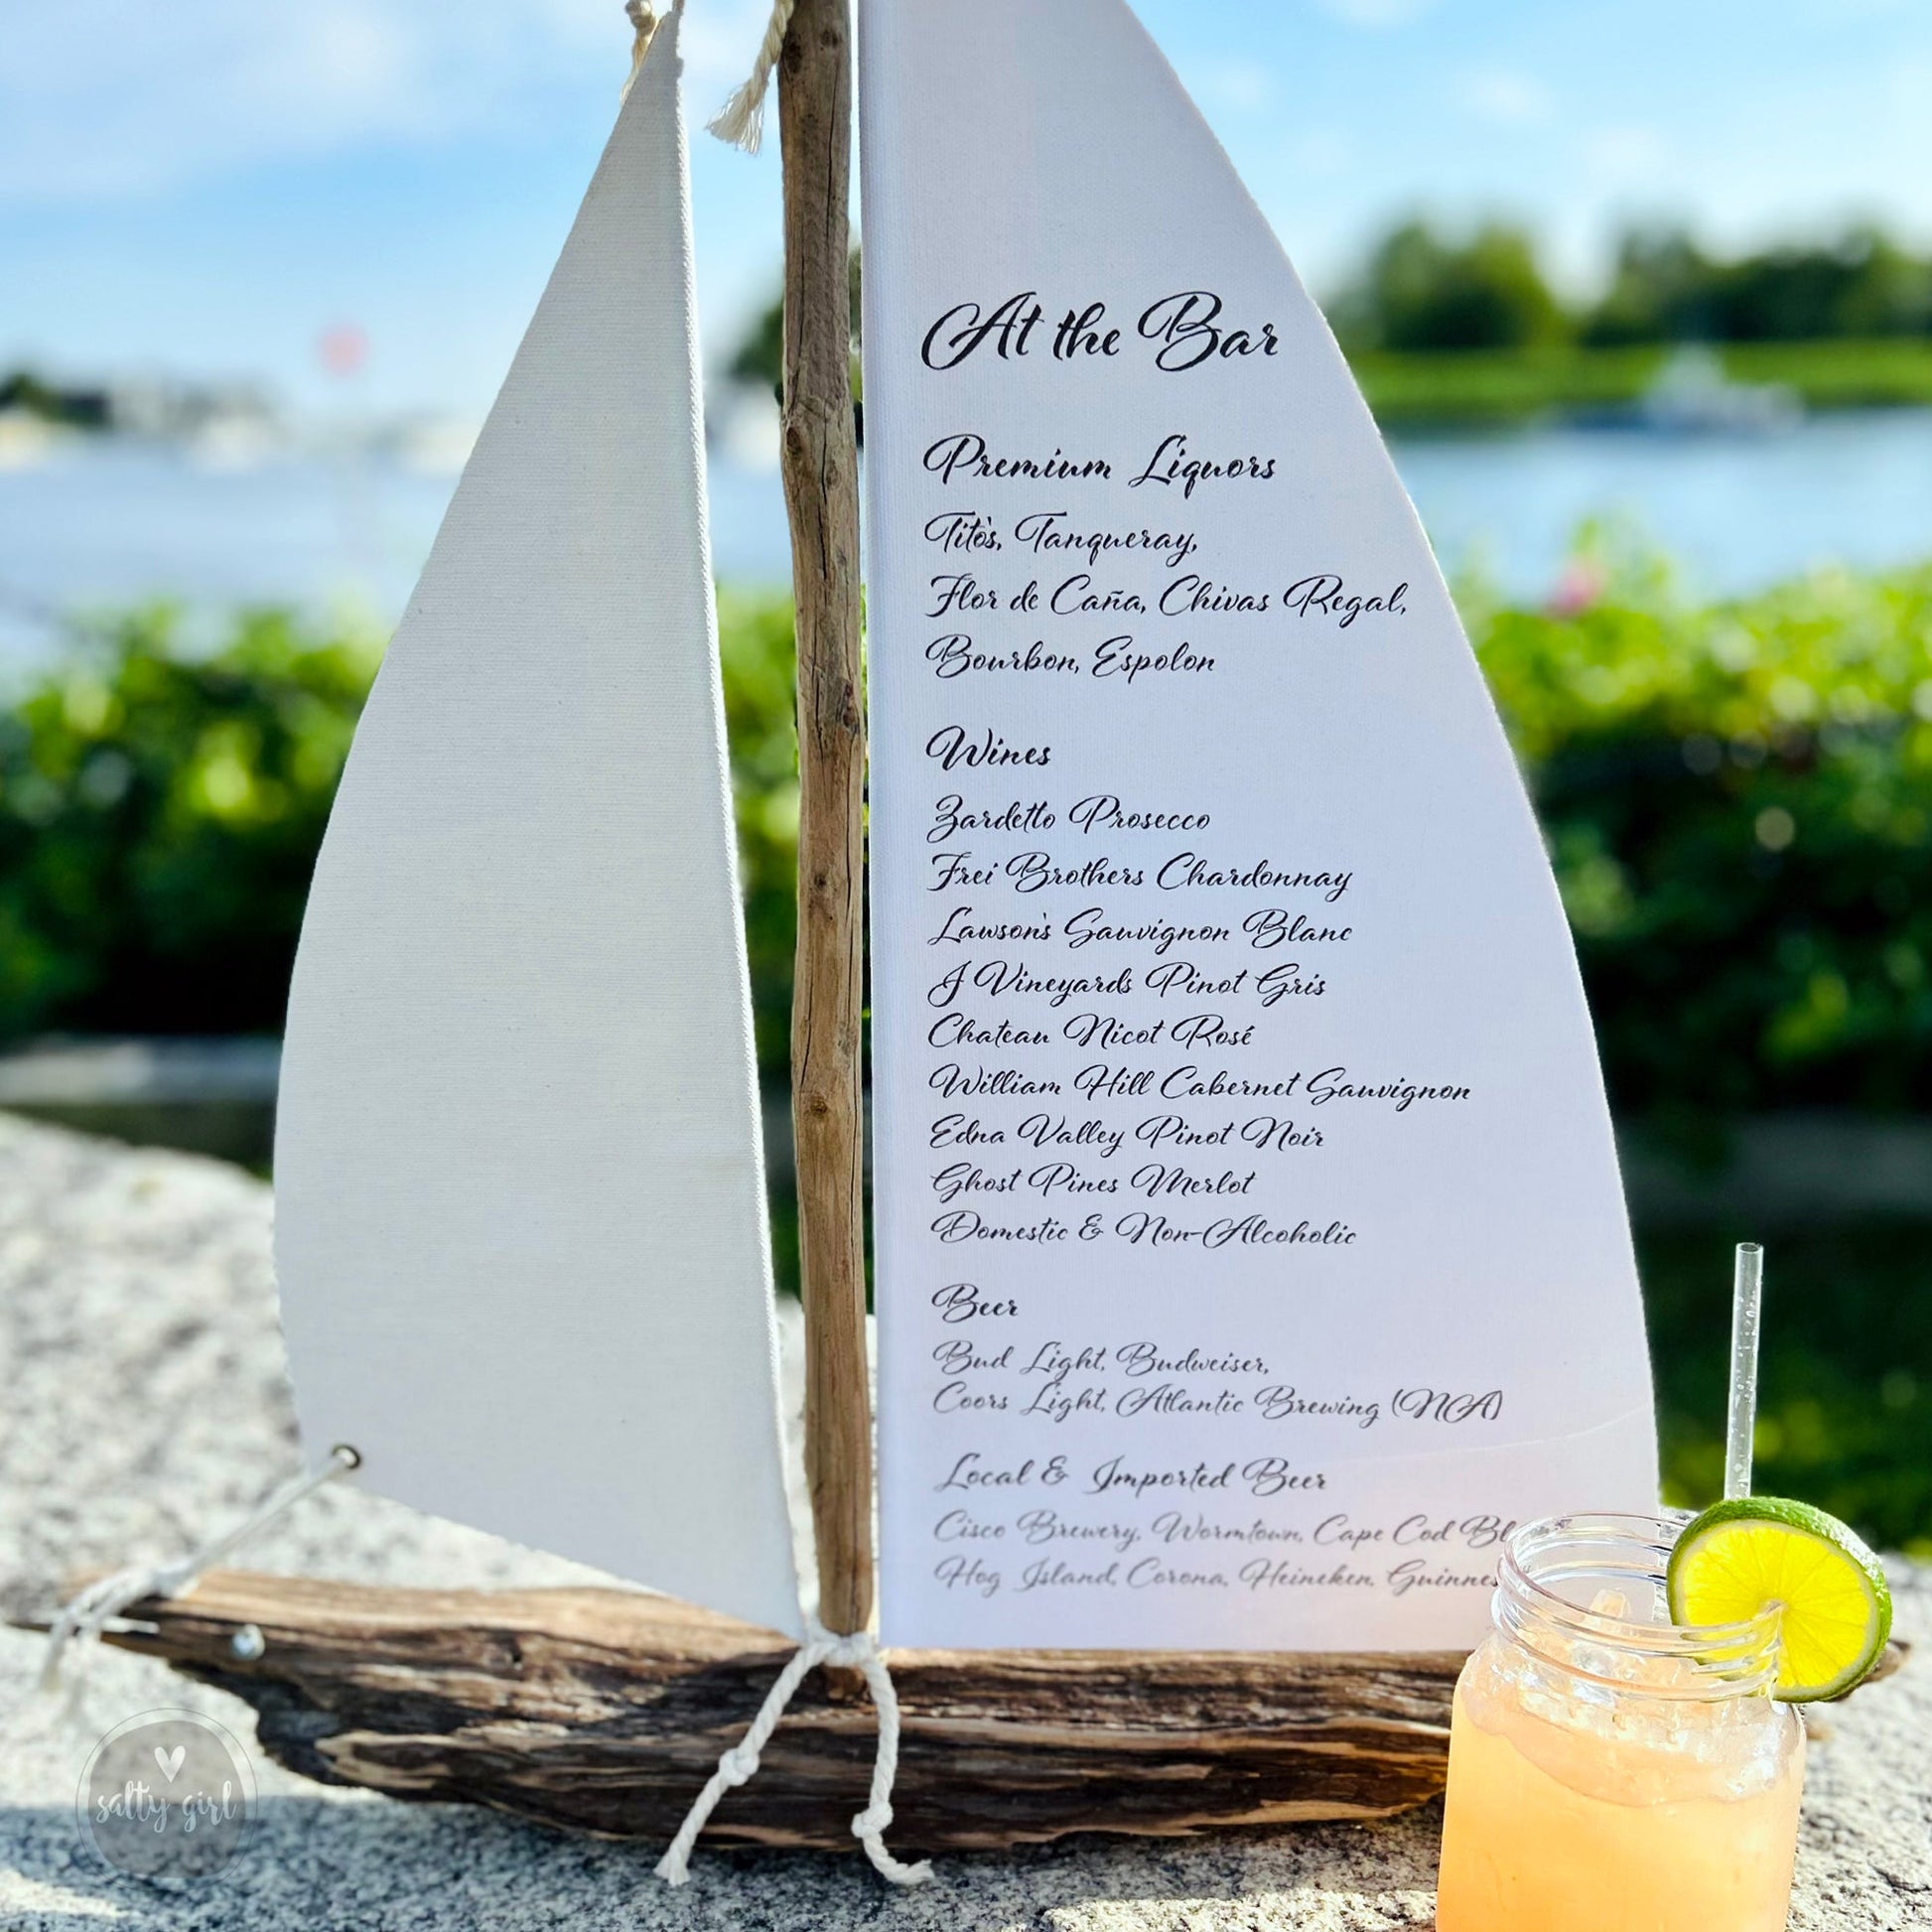 At the Bar
Premium Liquors
Tito's, Tanqueray,
Flor de Caña, Chivas Regal,
Bourbon, Espolon
Wines
Zardetto Prosecco
Frei Brothers Chardonnay
Lawson's Sauvignon Blanc
J Vineyards Pinot Gris
Chateau Nicot Rosé
William Hill Cabernet Sauvignon
Edna Valley Pinot Noir
Ghost Pines Merlot
Domestic & Non-Alcoholic
Beer
Bud Light, Budweiser,
Coors Light, Atlantic Brewing (NA)
Local & Imported Beer
Cisco Brewery, Wormtown, Cape Cod
Hog Island, Corona, Heineken,
salty girl